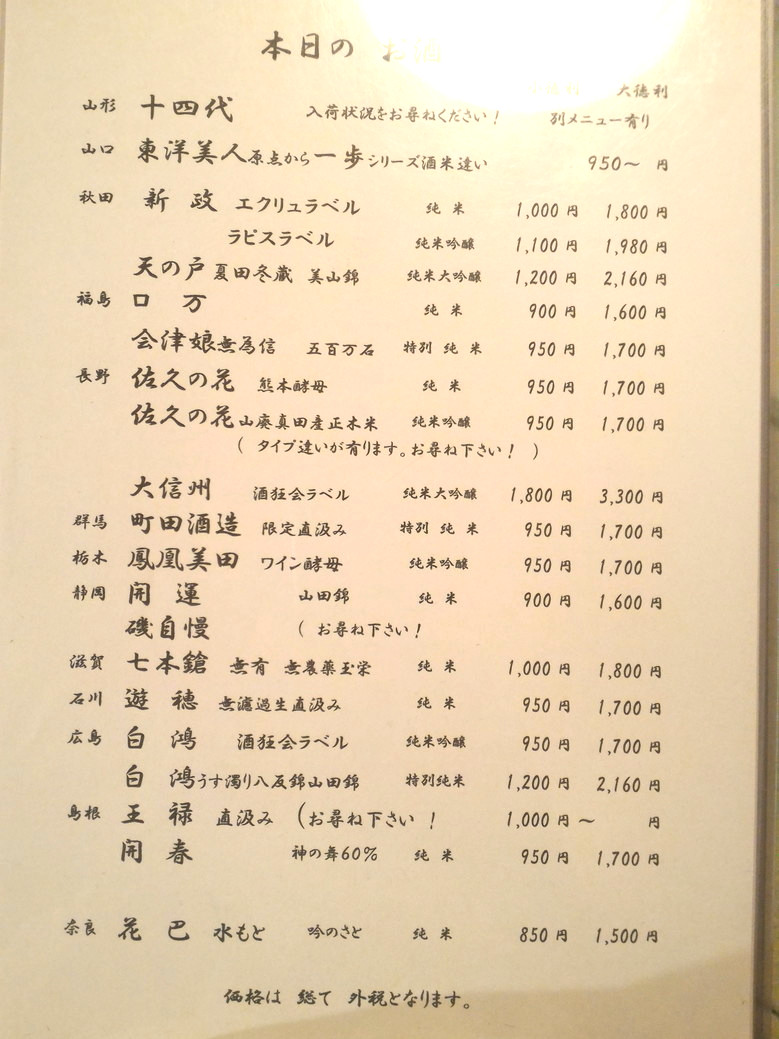 本日の お酒
大徳利
山形 十四代 入荷状況をお尋ねください! 別メニュー有り
山口 東洋美人原点から一歩シリーズ酒米違い 950～ 円
秋田 新 政 エクリュラベル 純 米 1,000 円 1,800 円
ラピスラベル 純米吟醸 1,100 円 1,980 円
天の戸 夏田冬蔵 美山錦 純米大吟醸 1,200 円 2,160 円
福島 口 万 純 米 900 円 1,600 円
会津娘無為信 五百万石 特別 純 米 950 円 1,700 円
長野 佐久の花 熊本酵母 純 米 950 円 1,700 円
佐久の花山廃真田産正木米 純米吟醸 950 円 1,700 円
( タイプ違いが有ります。お尋ね下さい! )
大信州 酒狂会ラベル 純米大吟醸 1,800 円 3,300 円
群馬 町田酒造 限定直汲み 特別 純 米 950 円 1,700 円
栃木 鳳凰美田 ワイン酵母 純米吟醸 950 円 1,700 円
静岡 開 運 山田錦 純 米 900 円 1,600 円
磯自慢 ( お尋ね下さい!
滋賀 七本鎗 無有 無農薬玉栄 純 米 1,000 円 1,800 円
石川 遊 穂 無濾過生直汲み 純 米 950 円 1,700 円
広島 白 鴻 酒狂会ラベル 純米吟醸 950 円 1,700 円
白 鴻うす濁り八反錦山田錦 特別純米 1,200 円 2,160 円
島根 王 禄 直汲み (お尋ね下さい ! 1,000 円 ～ 円
開 春 神の舞60% 純 米 950 円 1,700 円
奈良 花 巴 水もと 吟のさと 純 米 850 円 1,500 円
価格は 総て 外税となります。